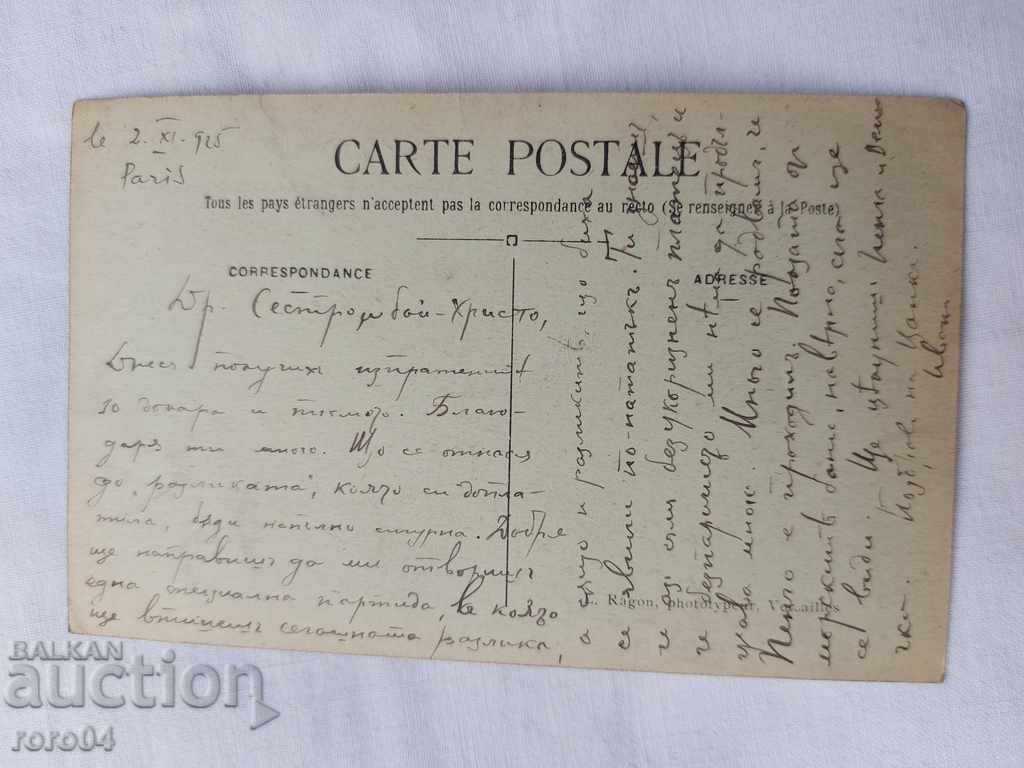 le 2. XI. 925
Paris
CARTE POSTALE
Tous les pays étrangers n'acceptent pas la correspondance au recto (Se renseigner à la Poste)
CORRESPONDANCE
ADRESSE
Др. Сестро и бай-Христо,
Днесъ получихъ изпратенитѣ
30 долара и писмото. Благо-
даря ти много. Що се отнася
до „разликата“, която си допла-
тила, бѫди напълно сигурна. Добре
ще направишъ да ми отворишъ
една специална партида, въ която
ще впишешъ сегашната разлика,
а също и разликитѣ, що биха
се явили по-нататъкъ. Ти знаешъ,
че азъ съмъ безукоризненъ платецъ и
че безпаричието ми нѣма да продъл-
жава много. Много се радвамъ, че
Пенчо е
морскитѣ бани, навѣрно, сѫщо ще
се види. Ще цѣлунешъ Пенка и
Поздрави на
L. Ragon, phototypeur, Versailles
BALKAN
auction
roro04